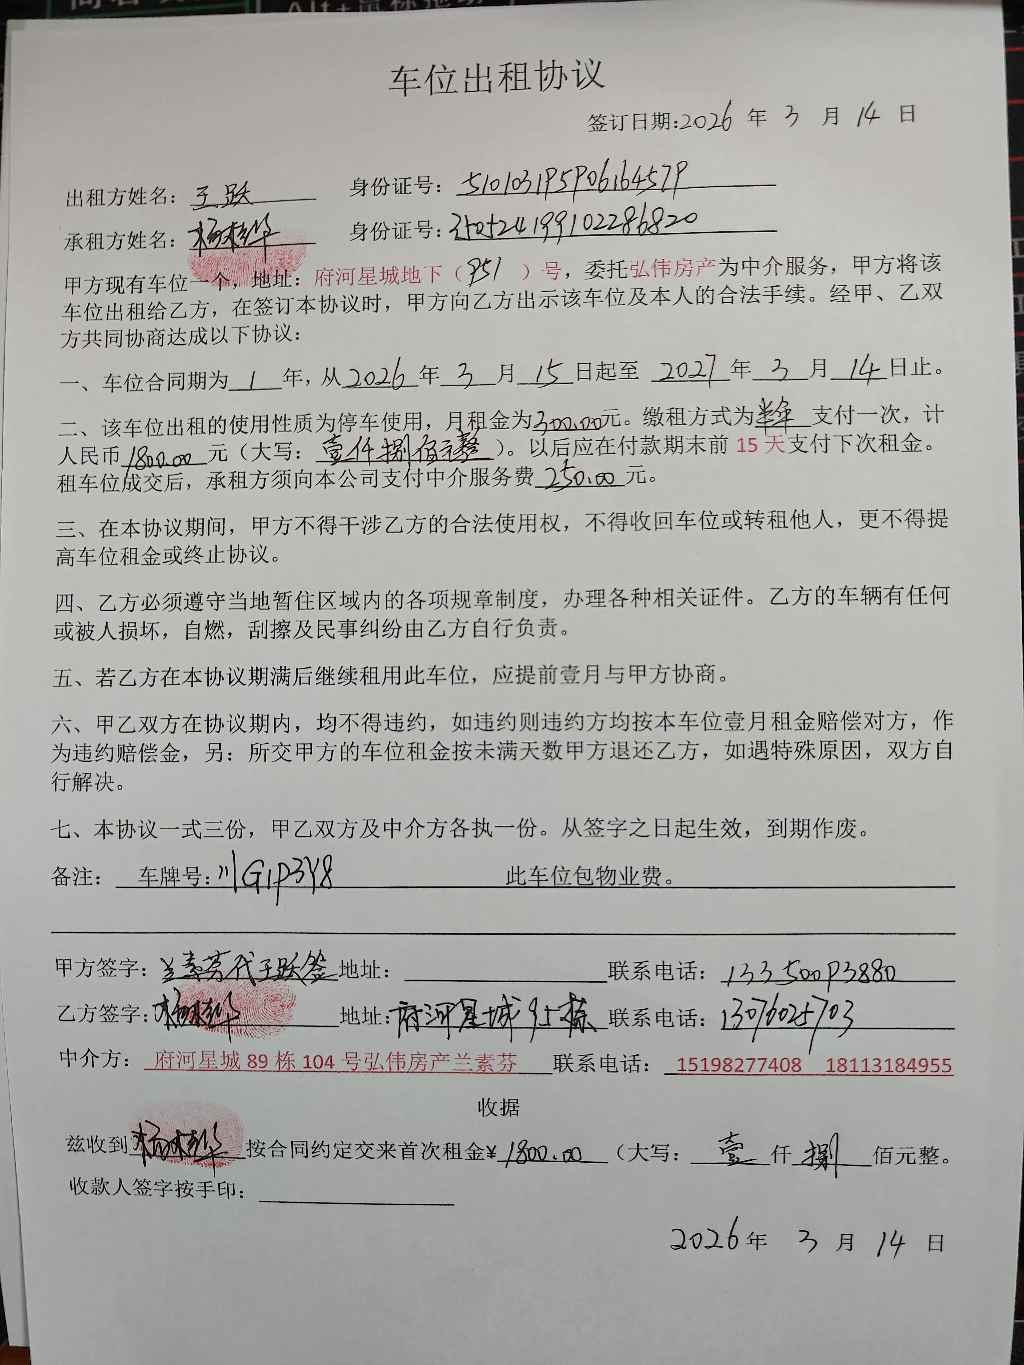 车位出租协议
签订日期:2026 年 3 月 14 日
出租方姓名: 王跃 身份证号: 510103195906164579
承租方姓名: 杨桂华 身份证号: 510524199102286820
甲方现有车位一个，地址: 府河星城地下（951）号，委托弘伟房产为中介服务，甲方将该
车位出租给乙方，在签订本协议时，甲方向乙方出示该车位及本人的合法手续。经甲、乙双
方共同协商达成以下协议:
一、车位合同期为 1 年，从 2026 年 3 月 15 日起至 2027 年 3 月 14 日止。
二、该车位出租的使用性质为停车使用，月租金为300.00元。缴租方式为半年支付一次，计
人民币1800.00元（大写: 壹仟捌佰元整）。以后应在付款期末前 15 天支付下次租金。
租车位成交后，承租方须向本公司支付中介服务费250.00元。
三、在本协议期间，甲方不得干涉乙方的合法使用权，不得收回车位或转租他人，更不得提
高车位租金或终止协议。
四、乙方必须遵守当地暂住区域内的各项规章制度，办理各种相关证件。乙方的车辆有任何
或被人损坏，自燃，刮擦及民事纠纷由乙方自行负责。
五、若乙方在本协议期满后继续租用此车位，应提前壹月与甲方协商。
六、甲乙双方在协议期内，均不得违约，如违约则违约方均按本车位壹月租金赔偿对方，作
为违约赔偿金，另: 所交甲方的车位租金按未满天数甲方退还乙方，如遇特殊原因，双方自
行解决。
七、本协议一式三份，甲乙双方及中介方各执一份。从签字之日起生效，到期作废。
备注: 车牌号:川G1P3Y8 此车位包物业费。
甲方签字: 兰素芬代王跃签 地址: 联系电话: 13350093880
乙方签字: 杨桂华 地址: 府河星城95栋 联系电话: 13076025703
中介方: 府河星城 89 栋 104 号弘伟房产兰素芬 联系电话: 15198277408 18113184955
收据
兹收到杨桂华按合同约定交来首次租金¥1800.00（大写: 壹仟捌佰元整。
收款人签字按手印:
2026年 3 月 14 日